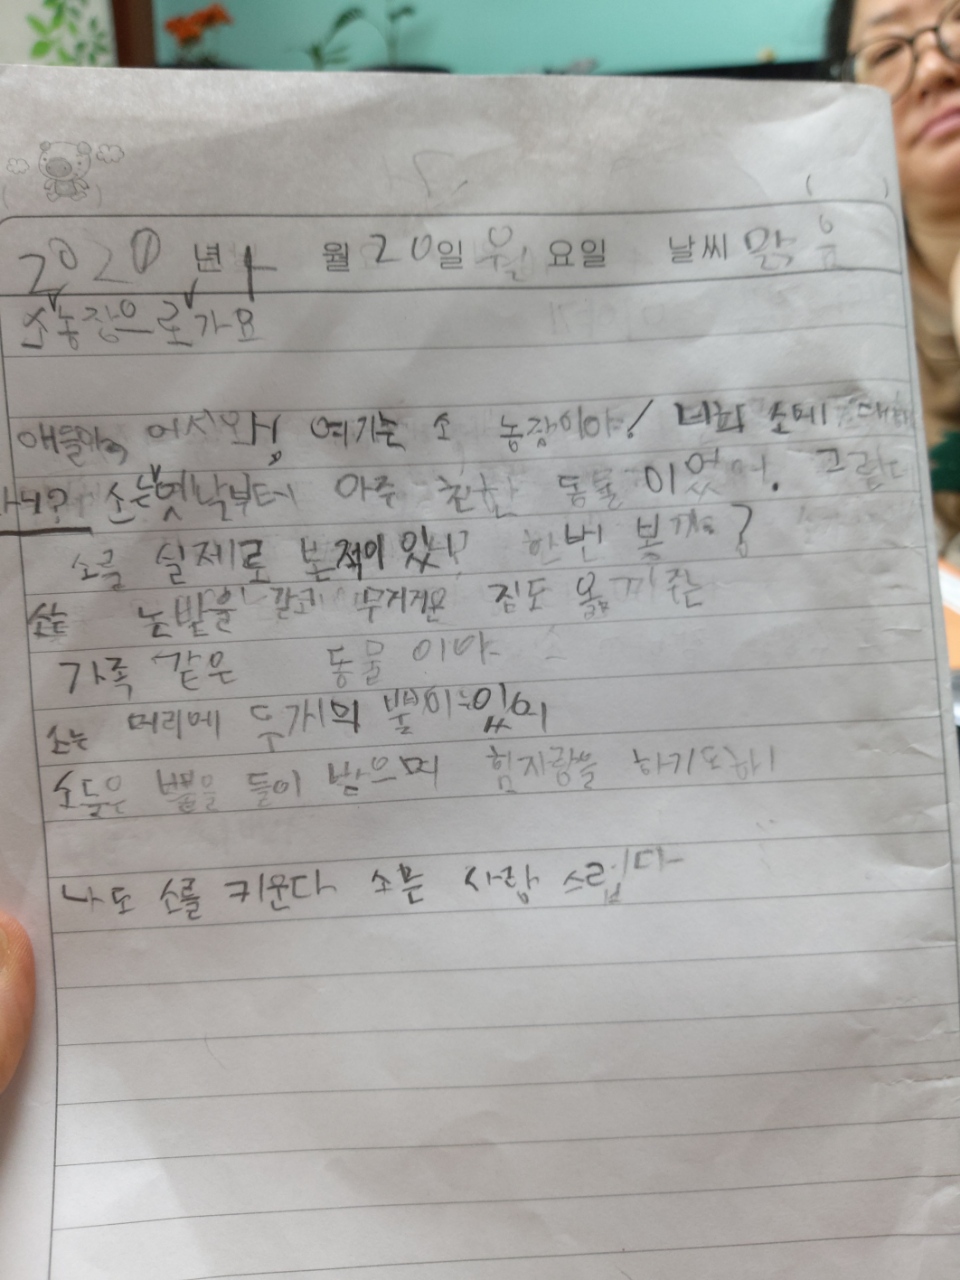 2020년 1월 20일 월요일 날씨 맑음
소농장으로가요
얘들아, 어서와! 여기는 소 농장이야! 너희 소에 대해
아니? 소는옛낙부터 아주 친한 동물이었어. 그런데
소를 실제로 본적이있니? 한번 볼까?
소는 논밭을 갈고 무거운 짐도 옮겨주는
가족 같은 동물이야
소는 머리에 두개의 뿔이있어
소들은 뿔을 들이 받으며 힘자랑을 하기도해
나도 소를 키운다 소는 사랑 스럽다